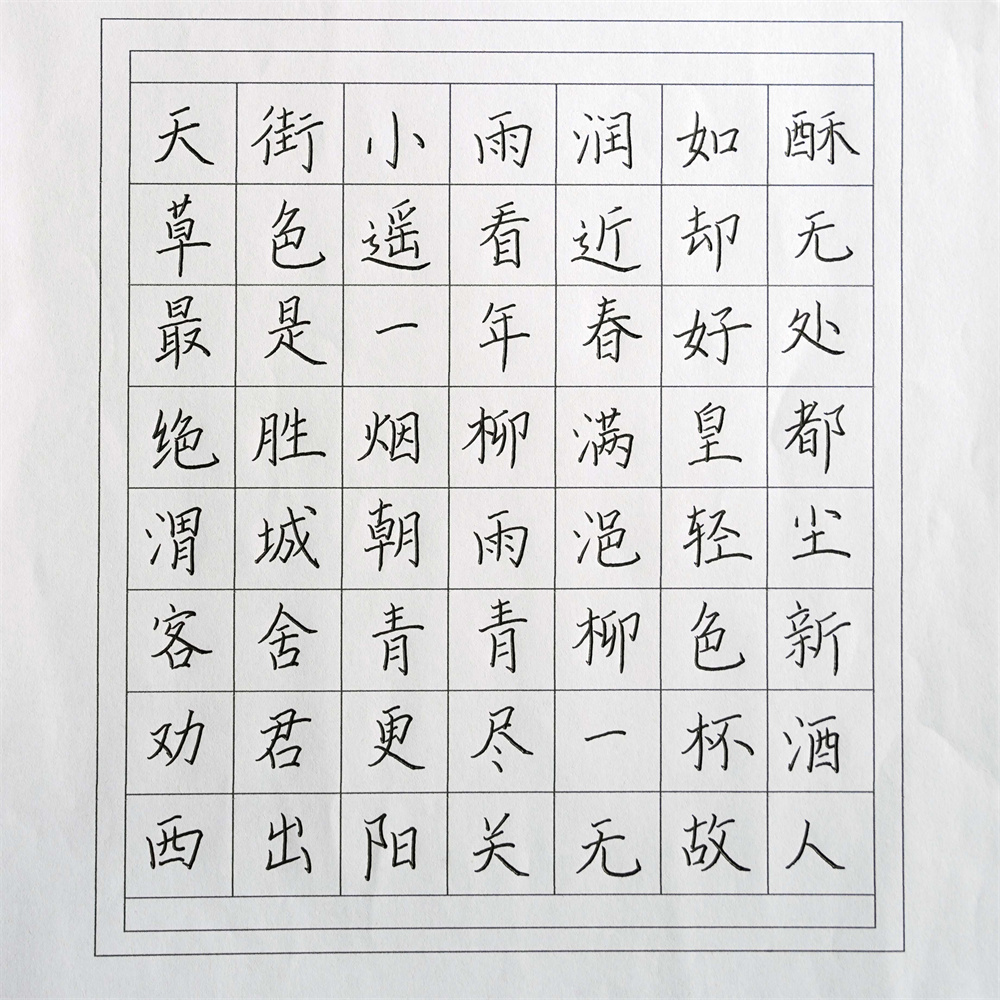 天街小雨润如酥
草色遥看近却无
最是一年春好处
绝胜烟柳满皇都
渭城朝雨浥轻尘
客舍青青柳色新
劝君更尽一杯酒
西出阳关无故人